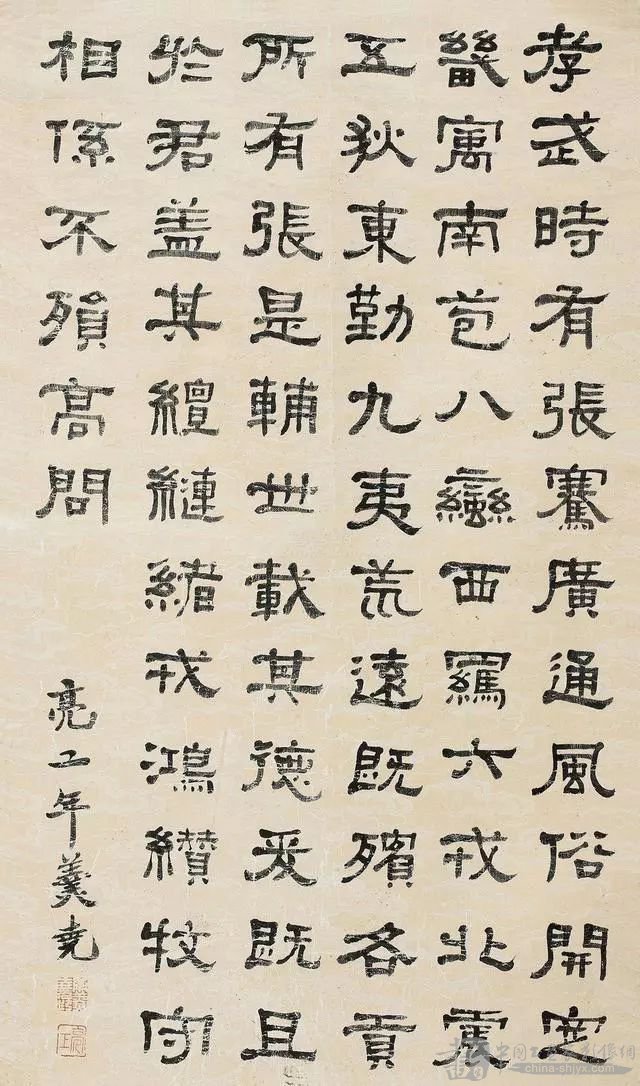 孝武時有張騫廣通風俗開定
畿寓南苞八蠻西羈六戎北震
五狄東勤九夷荒遠既殯各貢
所有張是輔世載其德爰既且
於君盖其繵縺緒戎鴻纘牧守
相係不殞高問
亮工年羹堯
china-shjyx.com